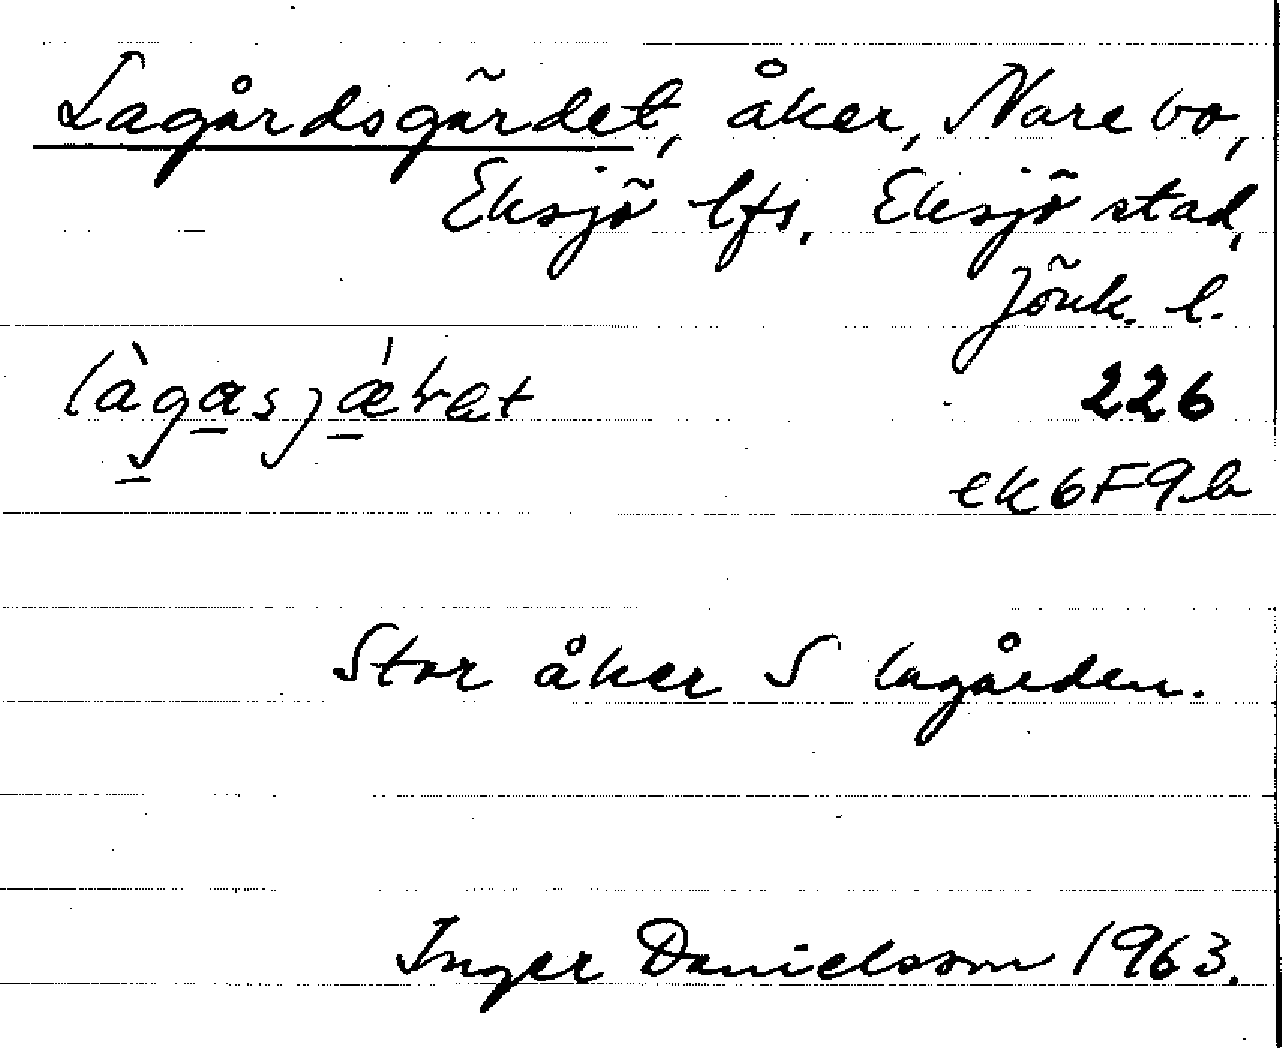 Lagårdsgärdet, åker, Narebo,
Eksjö lfs, Eksjö stad,
Jönk. l.
làgasjǽret
226
ek 6F9b
Stor åker S lagården.
Inger Danielsson 1963.